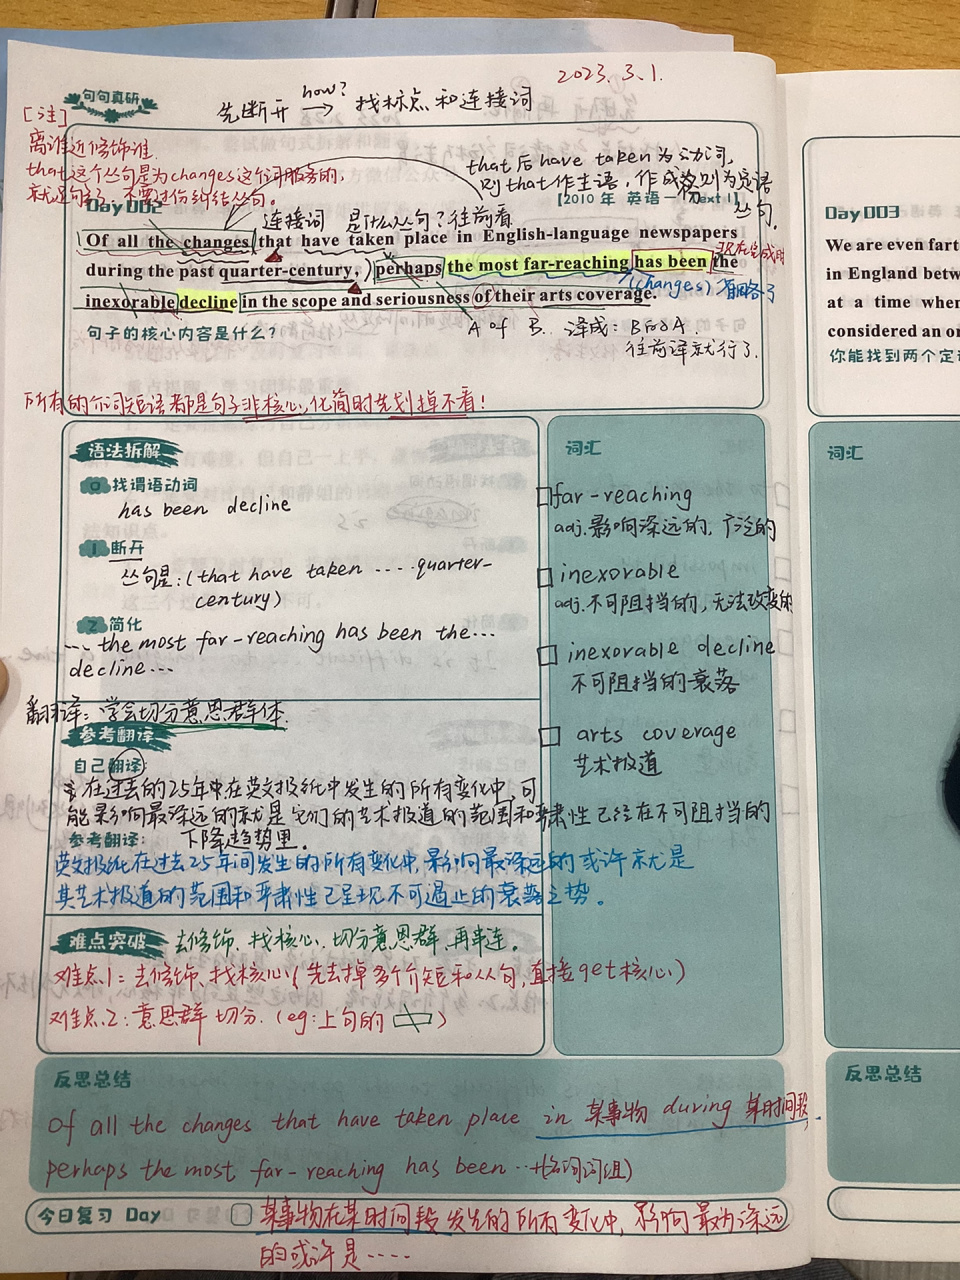 2023.3.1.
句句真研
先断开 how? → 找标点和连接词
[注]
离谁近修饰谁.
that这个丛句是为changes这个词服务的,
就是句子, 不要过份纠结丛句。
that后have taken为动词,
则that作主语, 作成分则为定语
丛句.
Day 002
[2010年 英语一 Text 1]
连接词 是什么丛句? 往前看
Of all the changes that have taken place in English-language newspapers
现在完成时
during the past quarter-century, perhaps the most far-reaching has been the
(changes) 省略了
inexorable decline in the scope and seriousness of their arts coverage.
句子的核心内容是什么?
A of B. 译成: B的A.
往前译就行了.
所有的介词短语都是句子非核心, 化简时先划掉不看!
语法拆解
0 找谓语动词
has been decline
1 断开
丛句是: (that have taken ..... quarter-
century)
2 简化
... the most far-reaching has been the...
decline...
翻译: 学会切分意思群体.
参考翻译
自己翻译
在过去的25年中在英文报纸中发生的所有变化中, 可
能影响最深远的就是它们的艺术报道的范围和严肃性已经在不可阻挡的
下降趋势里.
参考翻译:
英文报纸在过去25年间发生的所有变化中, 影响最深远的或许就是
其艺术报道的范围和严肃性已呈现不可遏止的衰落之势。
难点突破 去修饰、找核心、切分意思群、再串连。
难点1: 去修饰、找核心 (先去掉多个介短和从句, 直接get核心)
难点2: 意思群切分. (eg: 上句的 )
词汇
far-reaching
adj. 影响深远的, 广泛的
inexorable
adj. 不可阻挡的, 无法改变的
inexorable decline
不可阻挡的衰落
arts coverage
艺术报道
反思总结
Of all the changes that have taken place in 某事物 during 某时间段,
perhaps the most far-reaching has been ...+(名词词组)
今日复习 Day
某事物在某时间段发生的所有变化中, 影响最为深远
的或许是.....
Day 003
We are even fart
in England betw
at a time when
considered an or
你能找到两个定语
词汇
反思总结